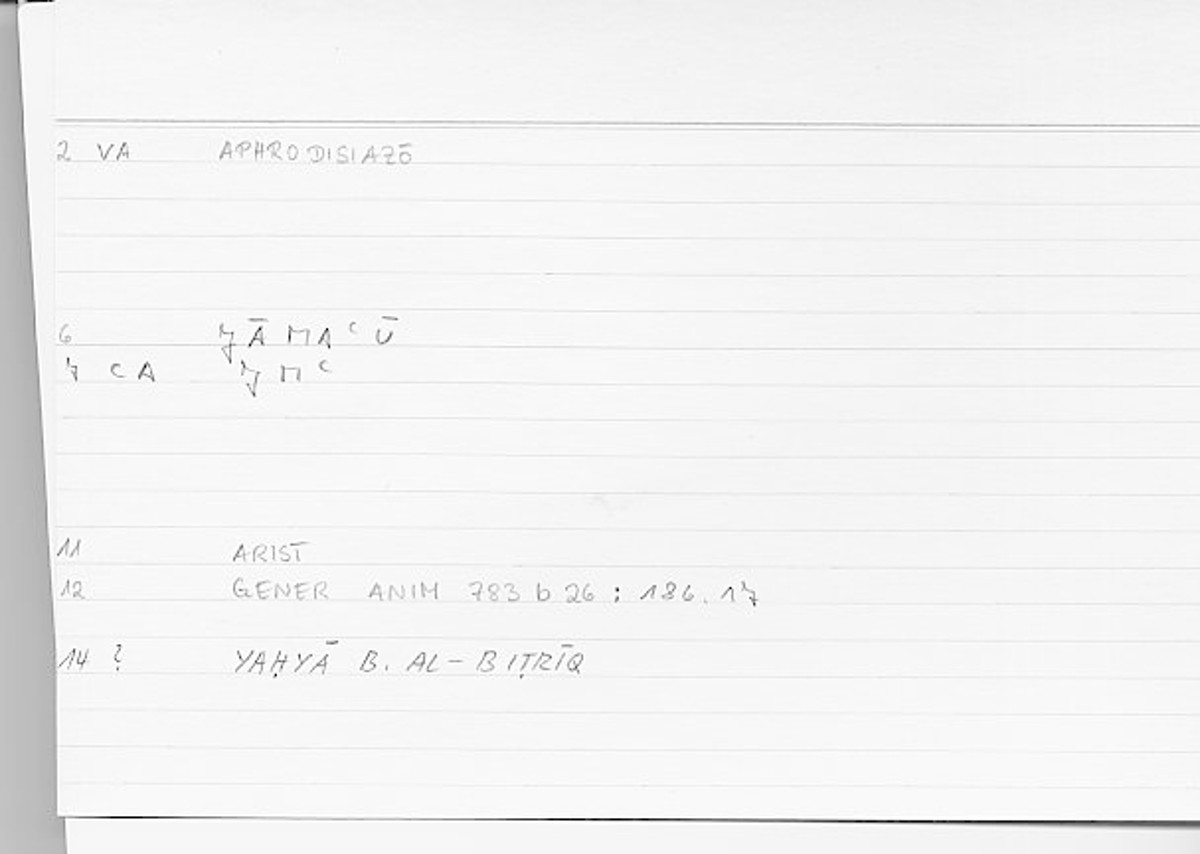 2 VA APHRODISIAZŌ
6 ǦĀMAʿŪ
7 CA ǦMʿ
11 ARIST
12 GENER ANIM 783 b 26 : 186.17
14 ? YAḤYĀ B. AL-BIṬRĪQ